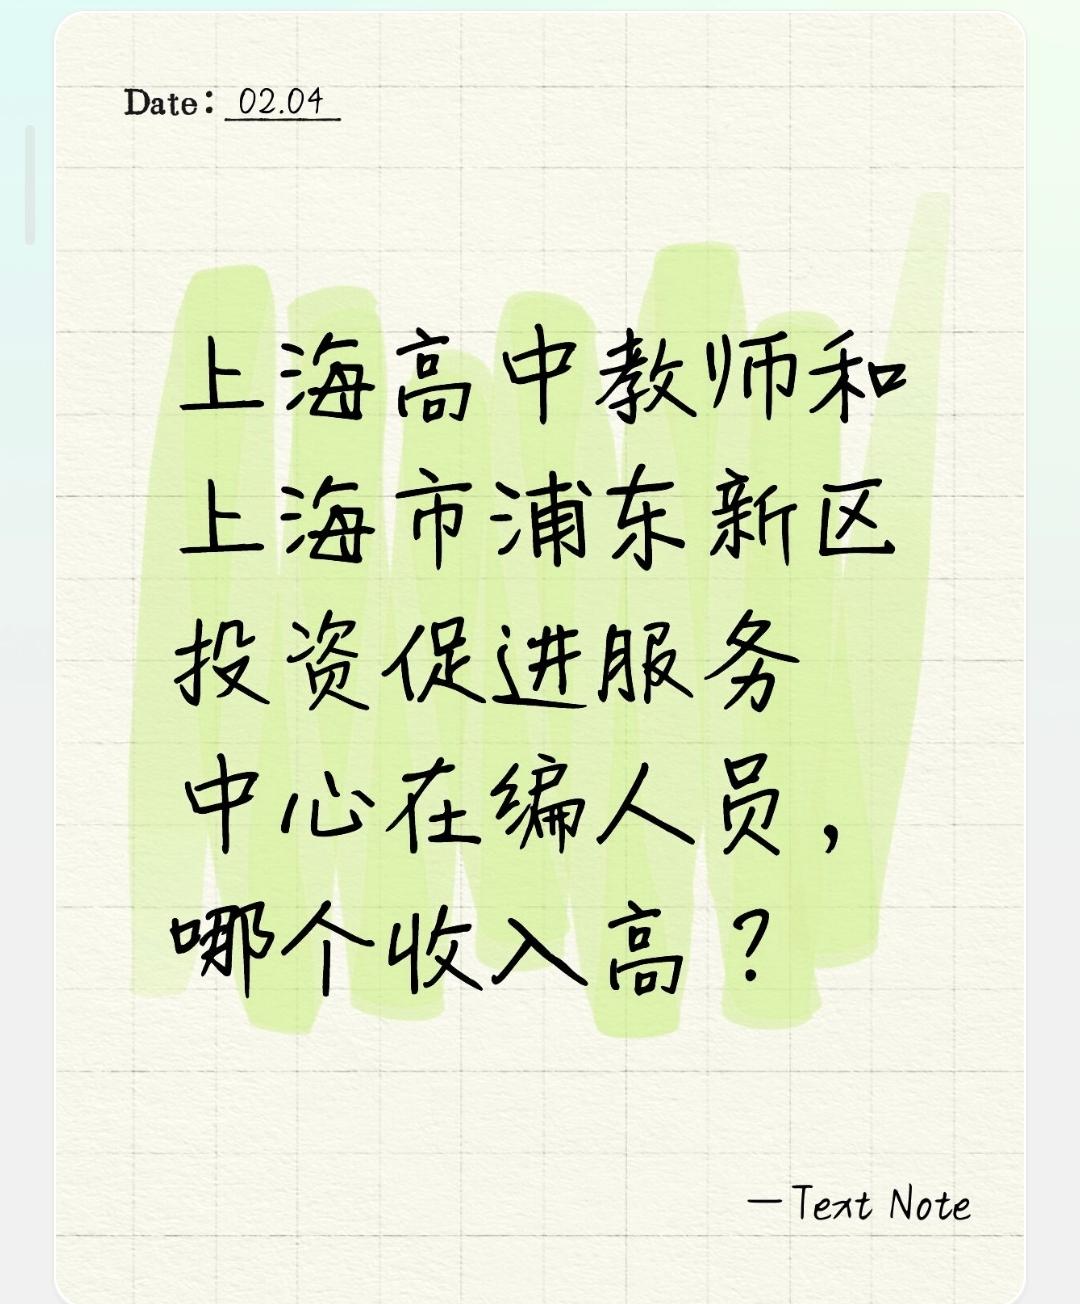 Date: 02.04
上海高中教师和
上海市浦东新区
投资促进服务
中心在编人员，
哪个收入高？
—Text Note